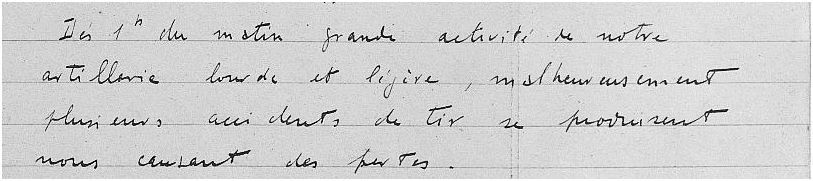 Dés 1h du matin grande activité de notre
artillerie lourde et légère, malheureusement
plusieurs accidents de tir se produisent
nous causant des pertes.